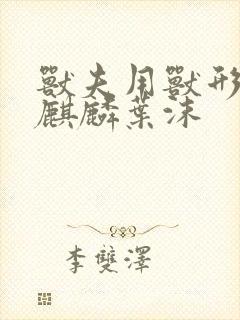 獸夫用獸形
麒麟葉沫
李雙澤